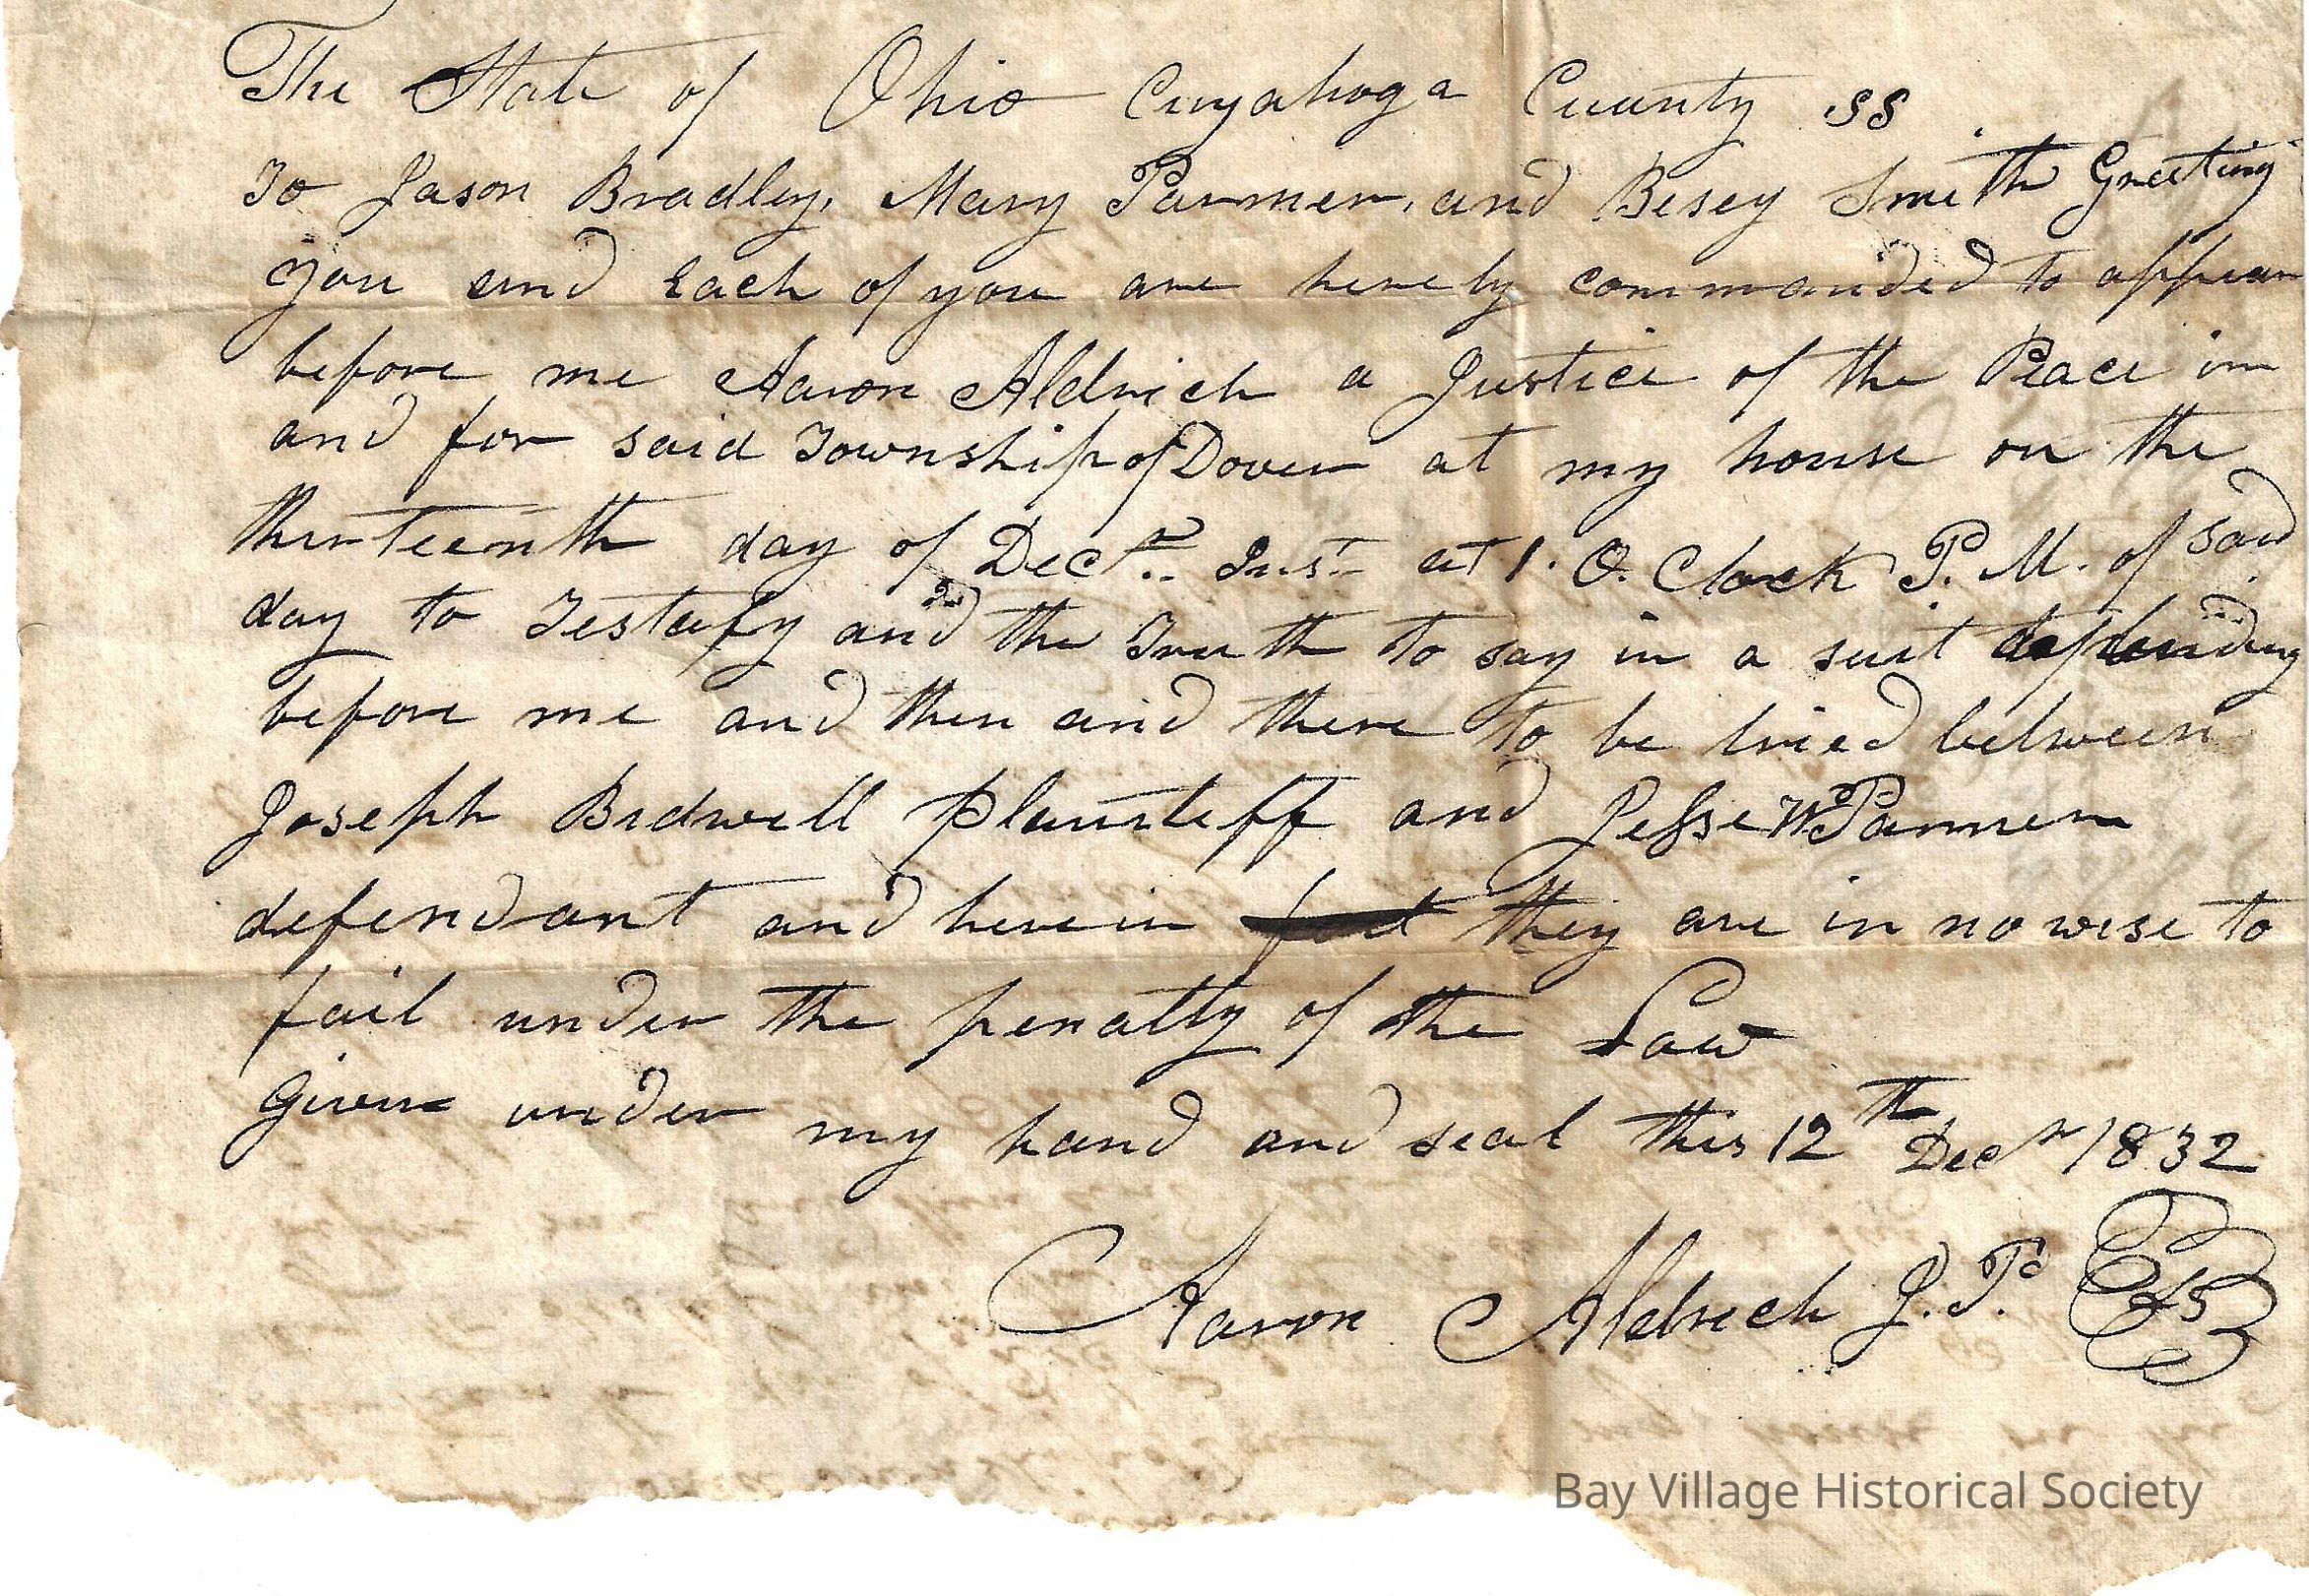 The State of Ohio Cuyahoga County ss
To Jason Bradley, Mary Parmer, and Besey Smith Greeting
you and Each of you are hereby commanded to appear
before me Aaron Aldrich a Justice of the Peace in
and for said Township of Dover at my house on the
thirteenth day of Decr. Inst at 1. O. Clock P. M. of said
day to Testafy and the Truth to say in a suit depending
before me and then and there to be tried between
Joseph Bidwell Plaintiff and Jesse W Parmer
defendant and herein they are in no wise to
fail under the penalty of the Law
Given under my hand and seal this 12th Decr 1832
Aaron Aldrich J. P. LS
Bay Village Historical Society